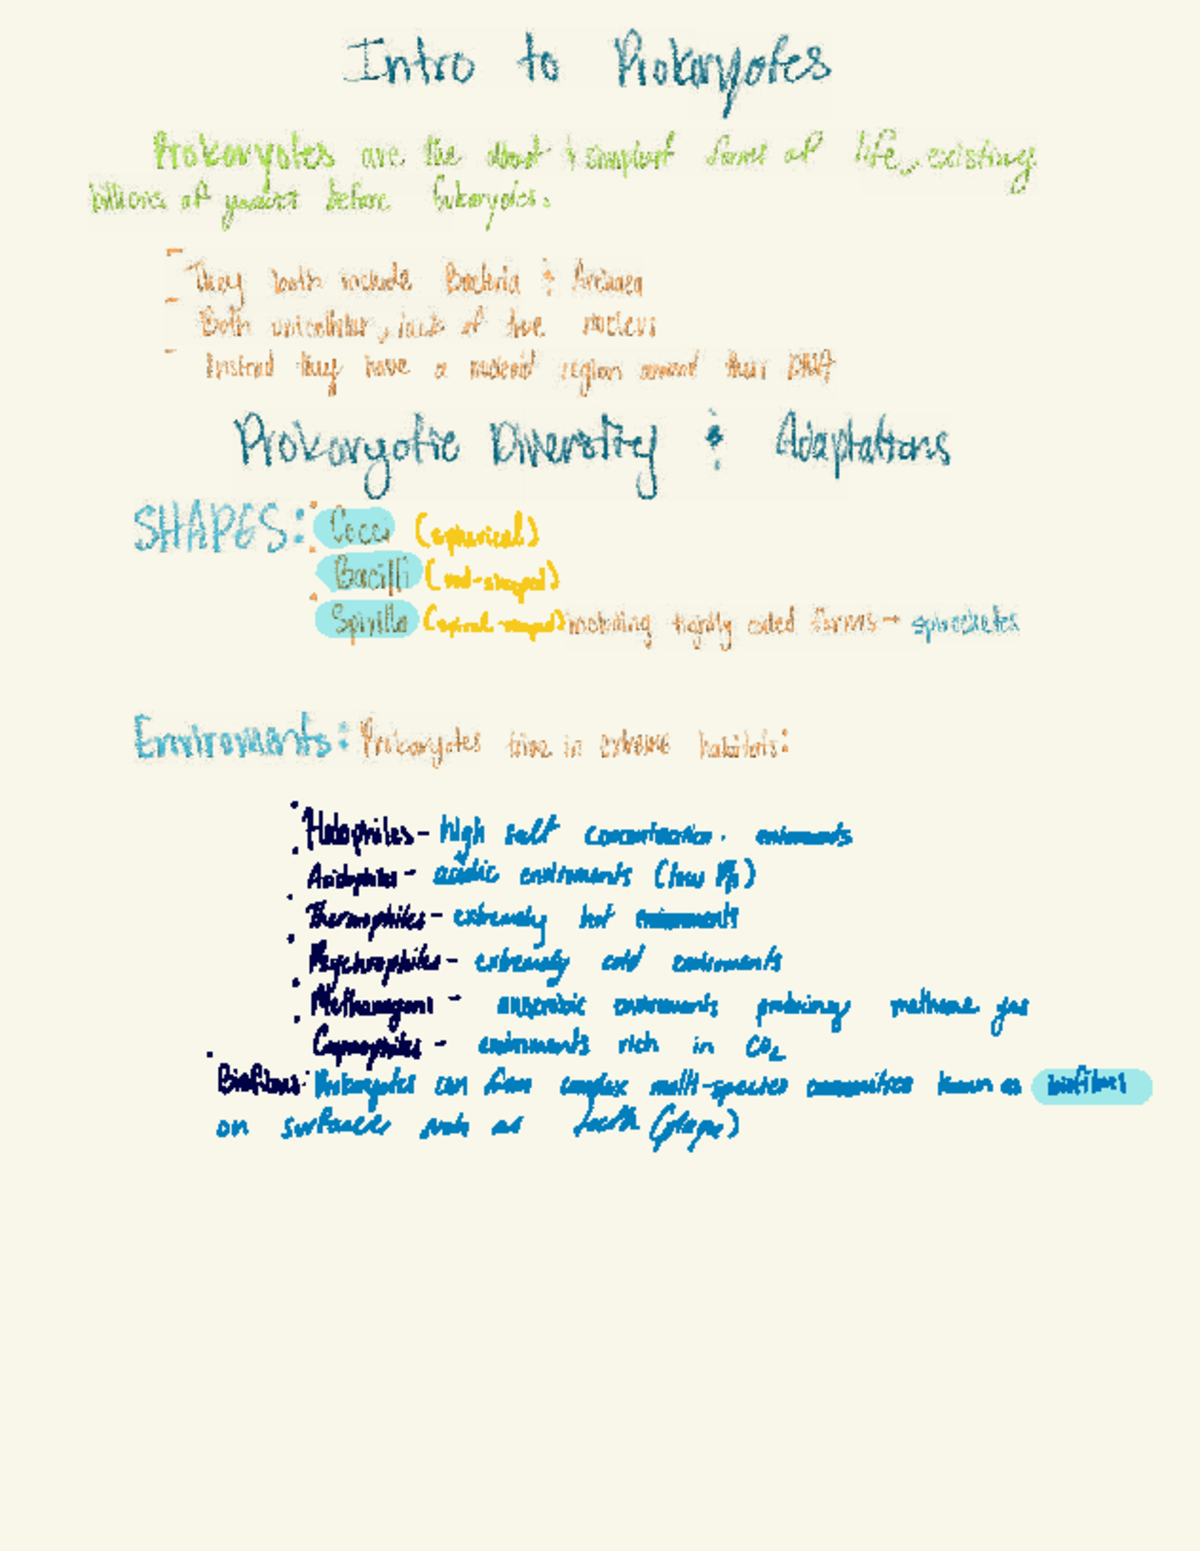 Intro to Prokaryotes
Prokaryotes are the & simplest forms of life, existing
billions of before Eukaryotes.
- They both include Bacteria & Archaea
- Both unicellular, lack of true nucleus
- Instead they have a nucleoid region around their DNA
Prokaryotic Diversity & Adaptations
SHAPES: • Cocci (spherical)
• Bacilli (rod-shaped)
• Spirilla (spiral-shaped) including tightly coiled forms → spirochetes
Enviroments: Prokaryotes in extreme habitats:
• Halophiles - high salt concentration. enviroments
• Acidophiles - acidic enviroments (low Ph)
• Thermophiles - extremely hot enviroments
• Psychrophiles - extremely cold enviroments
• Methanogens - anaerobic enviroments producing methane gas
• Capnophiles - enviroments rich in CO₂
• Biofilms: Prokaryotes can form complex multi-species communities known as biofilms
on surfaces such as teeth